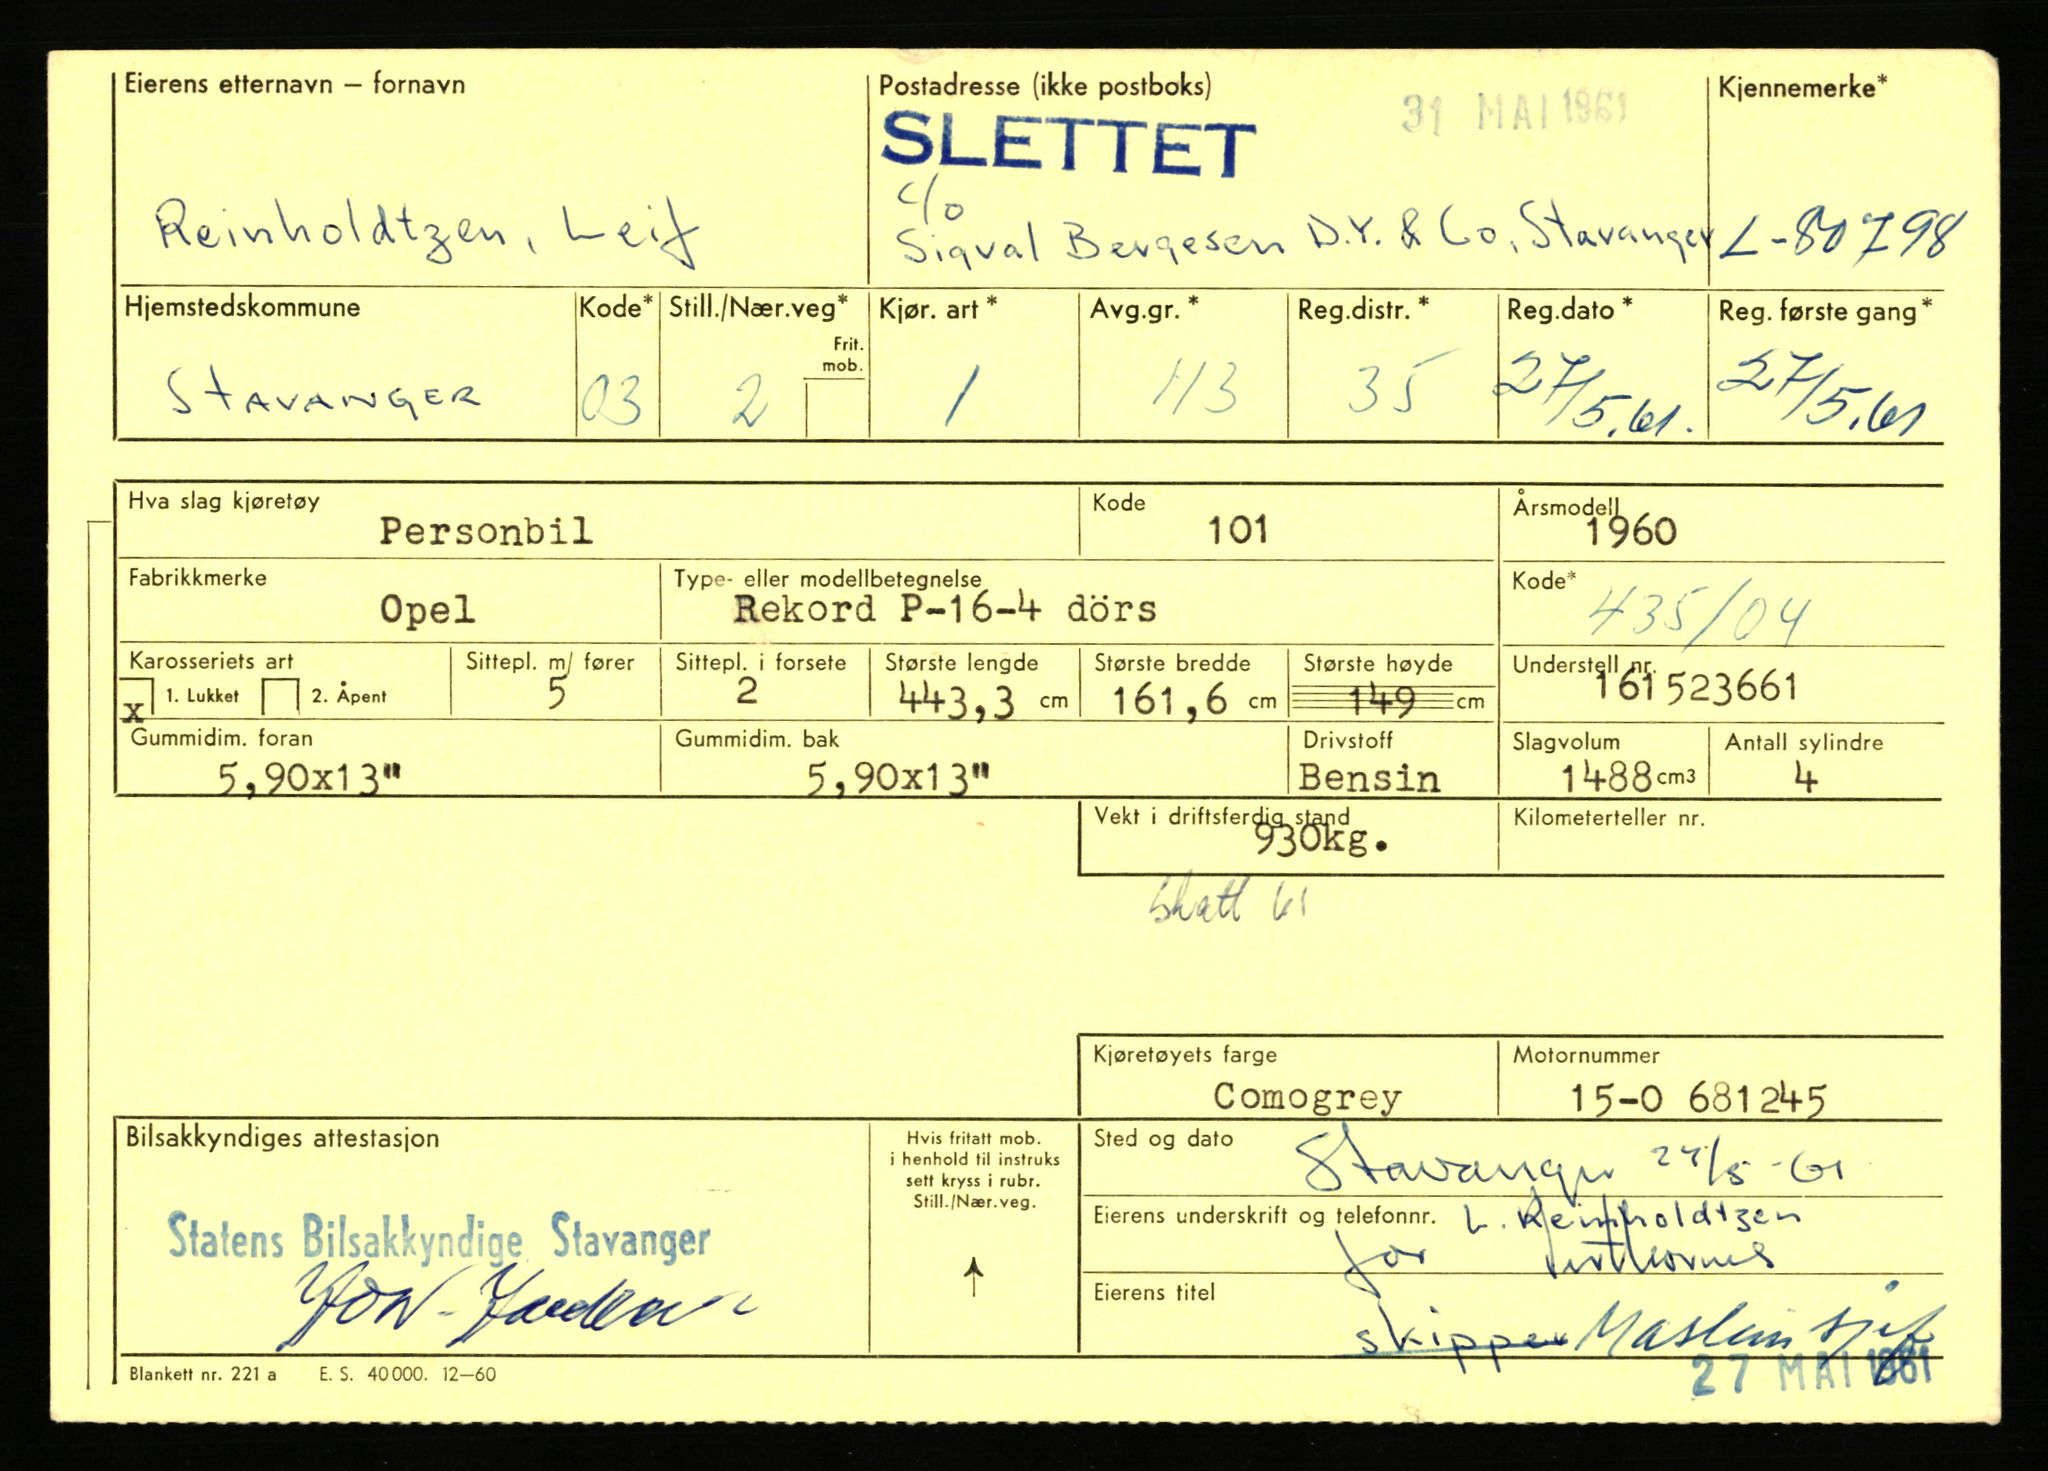 Eierens etternavn – fornavn
Postadresse (ikke postboks)
31 MAI 1961
Kjennemerke*
SLETTET
c/o
Reinholdtzen, Leif
Sigval Bergesen D.Y. & Co, Stavanger
L-80798
Hjemstedskommune Kode* Still./Nær.veg* Kjør. art* Avg.gr.* Reg.distr.* Reg.dato* Reg. første gang*
Frit. mob.
STAVANGER 03 2 1 113 35 27/5.61. 27/5.61
Hva slag kjøretøy Kode Årsmodell
Personbil 101 1960
Fabrikkmerke Type- eller modellbetegnelse Kode*
Opel Rekord P-16-4 dörs 435/04
Karosseriets art Sittepl. m/ fører Sittepl. i forsete Største lengde Største bredde Største høyde Understell nr.
x 1. Lukket 2. Åpent 5 2 443,3 cm 161,6 cm 149 cm 161523661
Gummidim. foran Gummidim. bak Drivstoff Slagvolum Antall sylindre
5,90x13" 5,90x13" Bensin 1488 cm3 4
Vekt i driftsferdig stand Kilometerteller nr.
930kg.
Skatt 61
Kjøretøyets farge Motornummer
Comogrey 15-0 681245
Bilsakkyndiges attestasjon
Hvis fritatt mob.
i henhold til instruks
sett kryss i rubr.
Still./Nær.veg.
Sted og dato Stavanger 24/5-61
Eierens underskrift og telefonnr. L. Reinholdtzen
for
Statens Bilsakkyndige Stavanger
Eierens titel
skipper Maskinsjef
27 MAI 1961
Blankett nr. 221 a E. S. 40000. 12–60